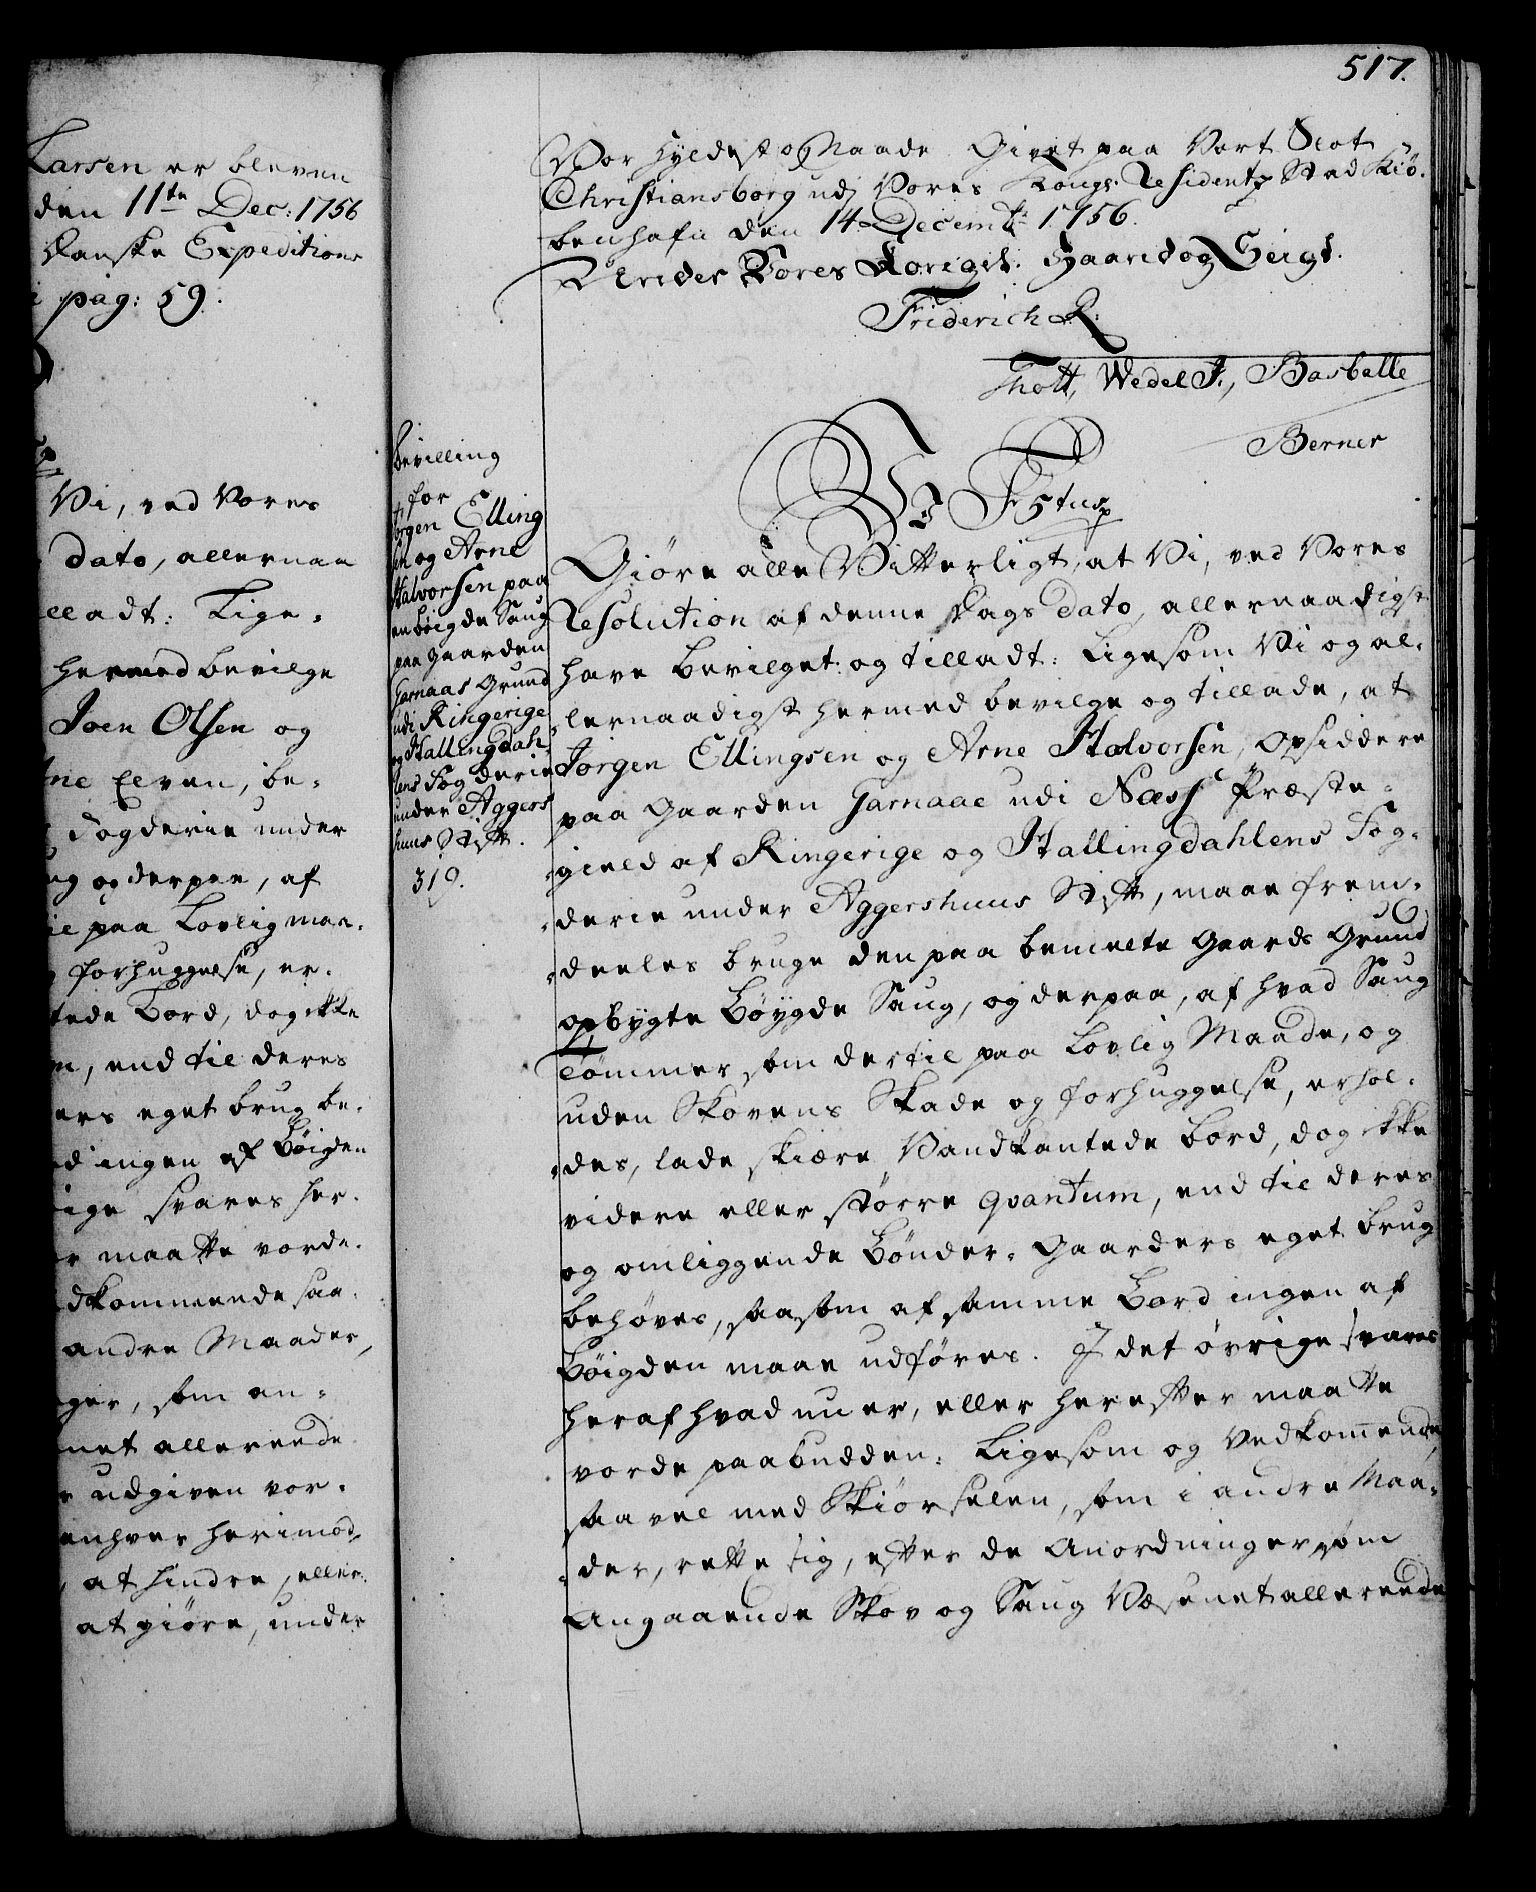 Larsen er bleven
den 11te Dec: 1756
Danske Expeditions
pag: 59.
Vi, ved Vores
dato, allernaa
lladt: Lige-
hermed bevilge
Joen Olsen og
Elven, be-
Fogderie under
og derpaa, af
paa Lovlig maa-
forhuggelse, er-
tede Bord, dog ikke
end til deres
ers eget brug be-
ingen af Böigden
svares her-
maatte vorde-
dkommende saa-
andre Maader,
ger, som an-
net allereede
udgiven vor-
enhver herimod
at hindre, eller
at giöre, under
517.
Vor Hyldest og Naade. Givet paa Vort Slot
Christiansborg udj Vores Kongl: Residentz Stad Kiö-
benhafn den 14 Decembr: 1756.
Under Vores Kongel: Haand og Seigl.
Friderich R:
Thott, Wedel F., Barbelle
Berner
Bevilling
for
Jörgen Elling
sen og Arne
Halvorsen paa
en böigde Saug
paa Gaarden
Garnaas Grund
udi Ringerige
og Hallingdah-
lens Fogderie
under Aggers
huus Stift.
319.
Vi F 5tus
Giöre alle Vitterligt, at Vi, ved Vores
Resolution af denne Dags dato, allernaadigst
have bevilget og tilladt: Ligesom Vi og al-
lernaadigst hermed bevilge og tillade, at
Jörgen Ellingsen og Arne Halvorsen, Opsiddere
paa Gaarden Garnaae udi Næss Præste-
gield af Ringerige og Hallingdahlens Fog-
derie under Aggershuus Stift, maae frem-
deeles bruge den paa bemelte Gaards Grund
opbygte Böygde Saug, og derpaa, af hvad Saug
Tömmer som dertil paa Lovlig Maade, og
uden Skovens Skade og forhuggelse, erhol-
des, lade skiære Vandkantede bord, dog ikke
videre eller större Qvantum, end til deres
og omliggende Bönder-Gaarders eget brug
behöves, saasom af samme Bord ingen af
Böigden maae udföres. I det övrige svares
heraf hvad nu er, eller herefter maatte
vorde paabudden: Ligesom og Vedkom̄ende,
saavel med Skiörselen, som i andre Maa-
der, rette sig, efter de Anordninger som
Angaaende Skov og Saug Væsenet allereede